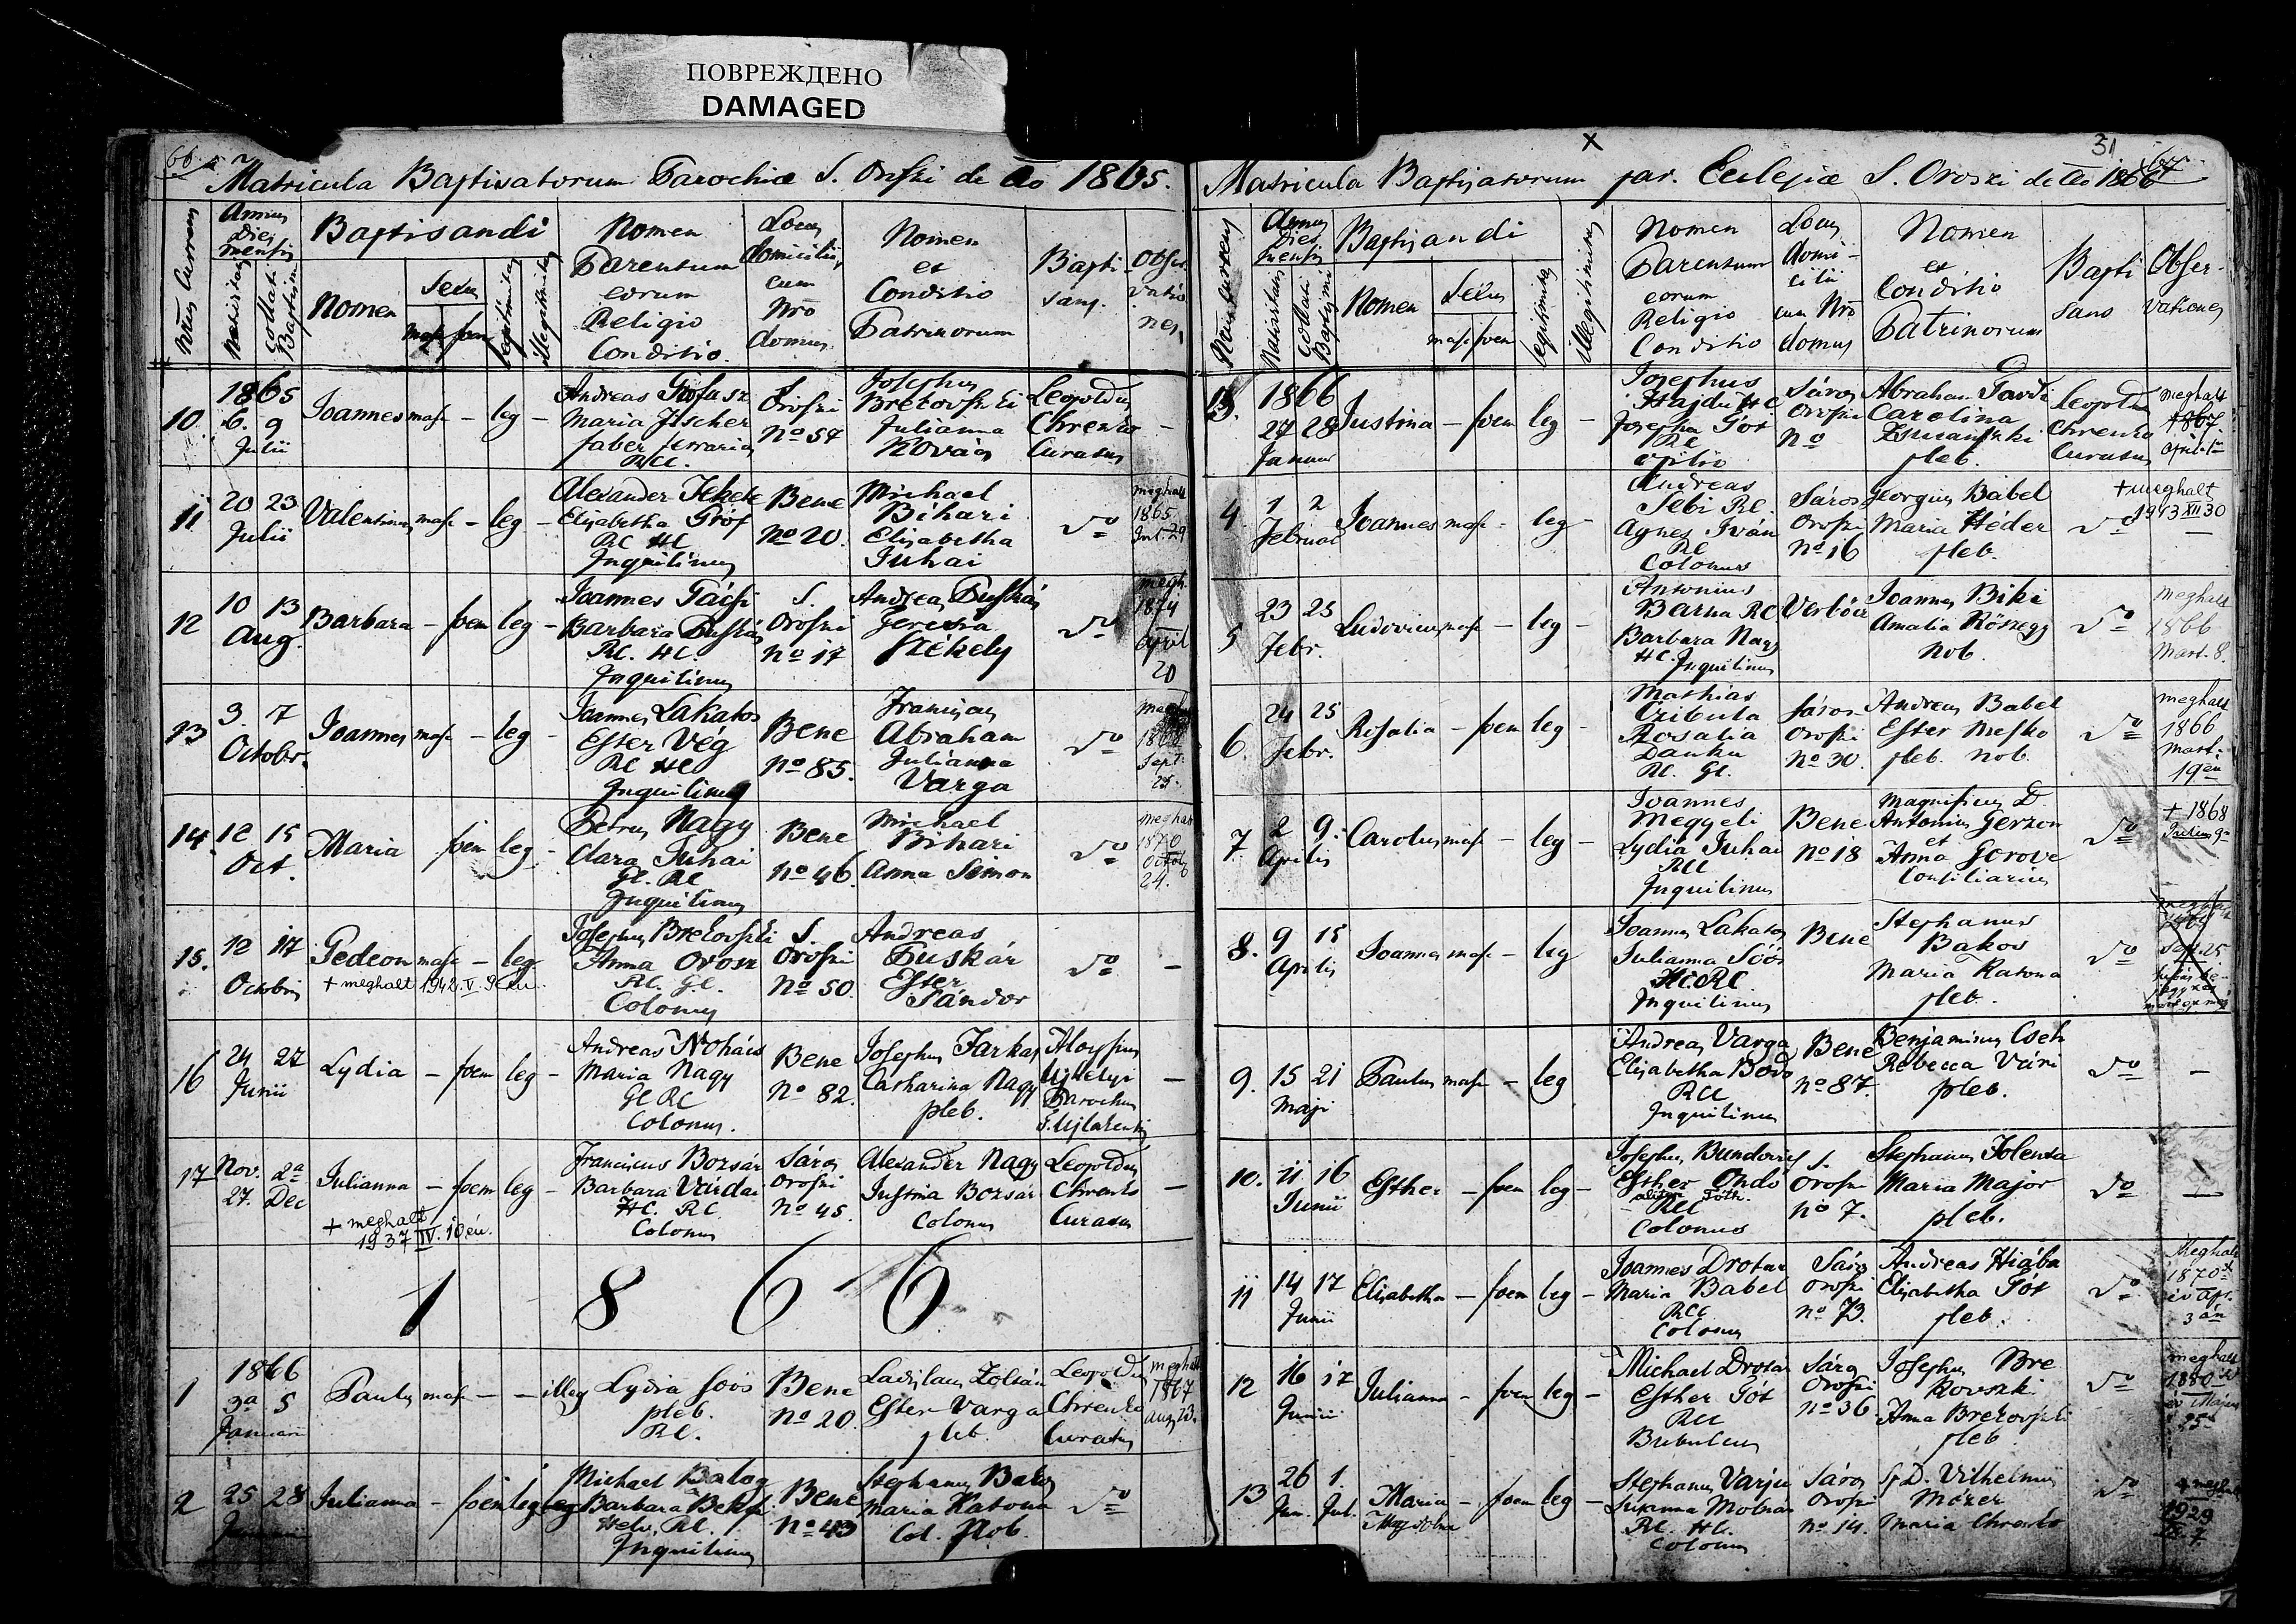 ПОВРЕЖДЕНО
DAMAGED
66
Matricula Baptisatorum Parochiæ S. Oroszi de Ao 1865.
Nrus Currens
Annus Dies mensis
Nativitatis
collati Baptismi
Baptisandi
Nomen
Sexus
masc foem
legitimitas
illegitimitas
Nomen Parentum eorum Religio Conditio.
Locus domicilii cum Nro domus
Nomen et Conditio Patrinorum
Baptisans.
Observationes
10. 1865 6. 9 Julii Joannes masc – leg –
Andreas Maria Fischer faber ferrarius RCC.
S. Oroszi No 57
Josephus Brezovszki Julianna Kovács
Leopoldus Chrenko Curatus –
11 20 23 Julii Valentinus masc – leg –
Alexander Fekete Elisabetha Gróf RC HC Inquilinus
Bene No 20.
Michael Bihari Elisabetha Juhai
do
meghalt 1865 Jul. 29
12 10 13 Aug. Barbara – foem leg –
Joannes Pácsi Barbara Puskás RC. HC. Inquilinus
S. Oroszi No 17
Andreas Puskás Székely
do
megh. 1874 April 20
13 3. 7 Octobr. Joannes masc – leg –
Joannes Lakatos Ester Vég RC HC Inquilinus
Bene No 85.
Franciscus Abraham Juliánna Varga
do
Sept. 25.
14. 12 15 Oct. Maria foem leg –
Petrus Nagy Clara Juhai GC. RC Inquilinus
Bene No 46.
Michael Bihari Anna Simon
do
meghalt 1870 Octob 24.
15. 12 17 Octobris Gedeon masc – leg.
+ meghalt 1942. V. 9én.
Josephus Brezovszki Anna Orosz RC. GC. Colonus
S. Oroszi No 50.
Andreas Puskár Ester Sándor
do –
16 24 27 Junii Lydia – foem leg –
Andreas Nohács Maria Nagy GC RC Colonus.
Bene No 82.
Josephus Farkas Catharina Nagy pleb.
Aloysius Ujhelyi Parochus –
17 Nov. 27. 2a Dec Julianna – foem leg –
+ meghalt 1937 IV. 10én.
Franciscus Borsár Barbara Várdai HC. RC Colonus
Sáros Oroszi No 45.
Alexander Nagy Justina Borsár Colonus
Leopoldus Chrenko Curatus –
1 8 6 6
1 1866 3a 5 Januarii Paulus masc – – illeg
Lydia Soós pleb. RC.
Bene No 20.
Ladislaus Zoltán Ester Varga pleb.
Leopoldus Chrenko Curatus
meghalt 1867 Aug 23.
2 25 28 Januarii Julianna – foem leg
Michael Balog Barbara Helv. RC. Inquilinus
Bene No 43
Stephanus Maria Katona Col. Nob.
do
x
31
67
Matricula Baptisatorum par. Eclesiæ S. Oroszi de Ao 1866
Nrus currens
Annus Dies mensis
Nativitatis
Collati Baptismi
Baptisandi
Nomen
Sexus
masc foem
legitimitas
illegitimitas
Nomen Parentum eorum Religio Conditio
Locus domicilii cum Nro domus
Nomen et Conditio Patrinorum
Baptisans
Observationes
3. 1866 27 28 Januar Justina – foem leg –
Josephus Hajdú HC Josepha Tót RC opilio
Sáros Oroszi No
Abraham Carolina pleb.
Leopoldus Chrenko Curatus
meghalt 1867 April 1
4. 1 2 Februar Joannes masc – leg –
Andreas Sebi RC. Agnes Iván RC Colonus
Sáros Oroszi No 16
Georgius Bábel Maria Héder pleb.
do
+ meghalt 1943 XII 30
–
5 23 25 Febr. Ludovicus masc – leg –
Antonius Barna RC Barbara Nagy HC. Inquilinus
Verbőcz
Joannes Biki Amalia Kőszegy Nob.
do
meghalt 1866 Mart. 8.
6. 24 25 Febr. Rosalia – foem leg –
Mathias Czibula Rosalia Danku RC. GC.
Sáros Oroszi No 30.
Andreas Babel Ester Mesko pleb. nob.
do
meghalt 1866 Mart. 19én
7. 2 9. Aprilis Carolus masc – leg –
Joannes Meggeli Lydia Juhai RCC Inquilinus
Bene No 18
Magnificus D. Antonius Gerzon et Anna Gorove Consiliarius
do
+ 1868 Julius 9
8. 9 15 Aprilis Joannes masc – leg
Joannes Lakatos Julianna Soós HC. RC Inquilinus
Bene
Stephanus Bakos Maria Katona pleb.
do
meghalt Sept. 25
9. 15 21 Maji Paulus masc – leg
Andreas Varga Elisabetha Bodó RCC Inquilinus
Bene No 87.
Benjaminus Cseh Rebecca Vári pleb.
do –
10. 11 16 Junii Esther – foem leg –
Josephus Esther Ondó aliter Tóth. RCC Colonus
S. Oroszi No 7.
Stephanus Maria Major pleb.
do –
11 14 17 Junii Elisabetha – foem leg –
Joannes Drotár Maria Babel RCC Colonus
Sáros Oroszi No 73.
Andreas Hiába Elisabetha Tót pleb.
do
Meghalt 1870 év Apr. 3án
12 16 17 Junii Julianna – foem leg –
Michael Drotár Esther Tót RCC Bubulcus
Sáros Oroszi No 36
Josephus Brekovszki Anna Brekovszki pleb.
do
meghalt 1880 év Május
13 26 Jun. 1. Jul. Maria Magdolna – foem leg –
Stephanus Varju Susanna Molnár RC. HC. Colonus
Sáros Oroszi No 14.
Vilhelmus Mózer Maria Chrenko
do
+ meghalt 1929